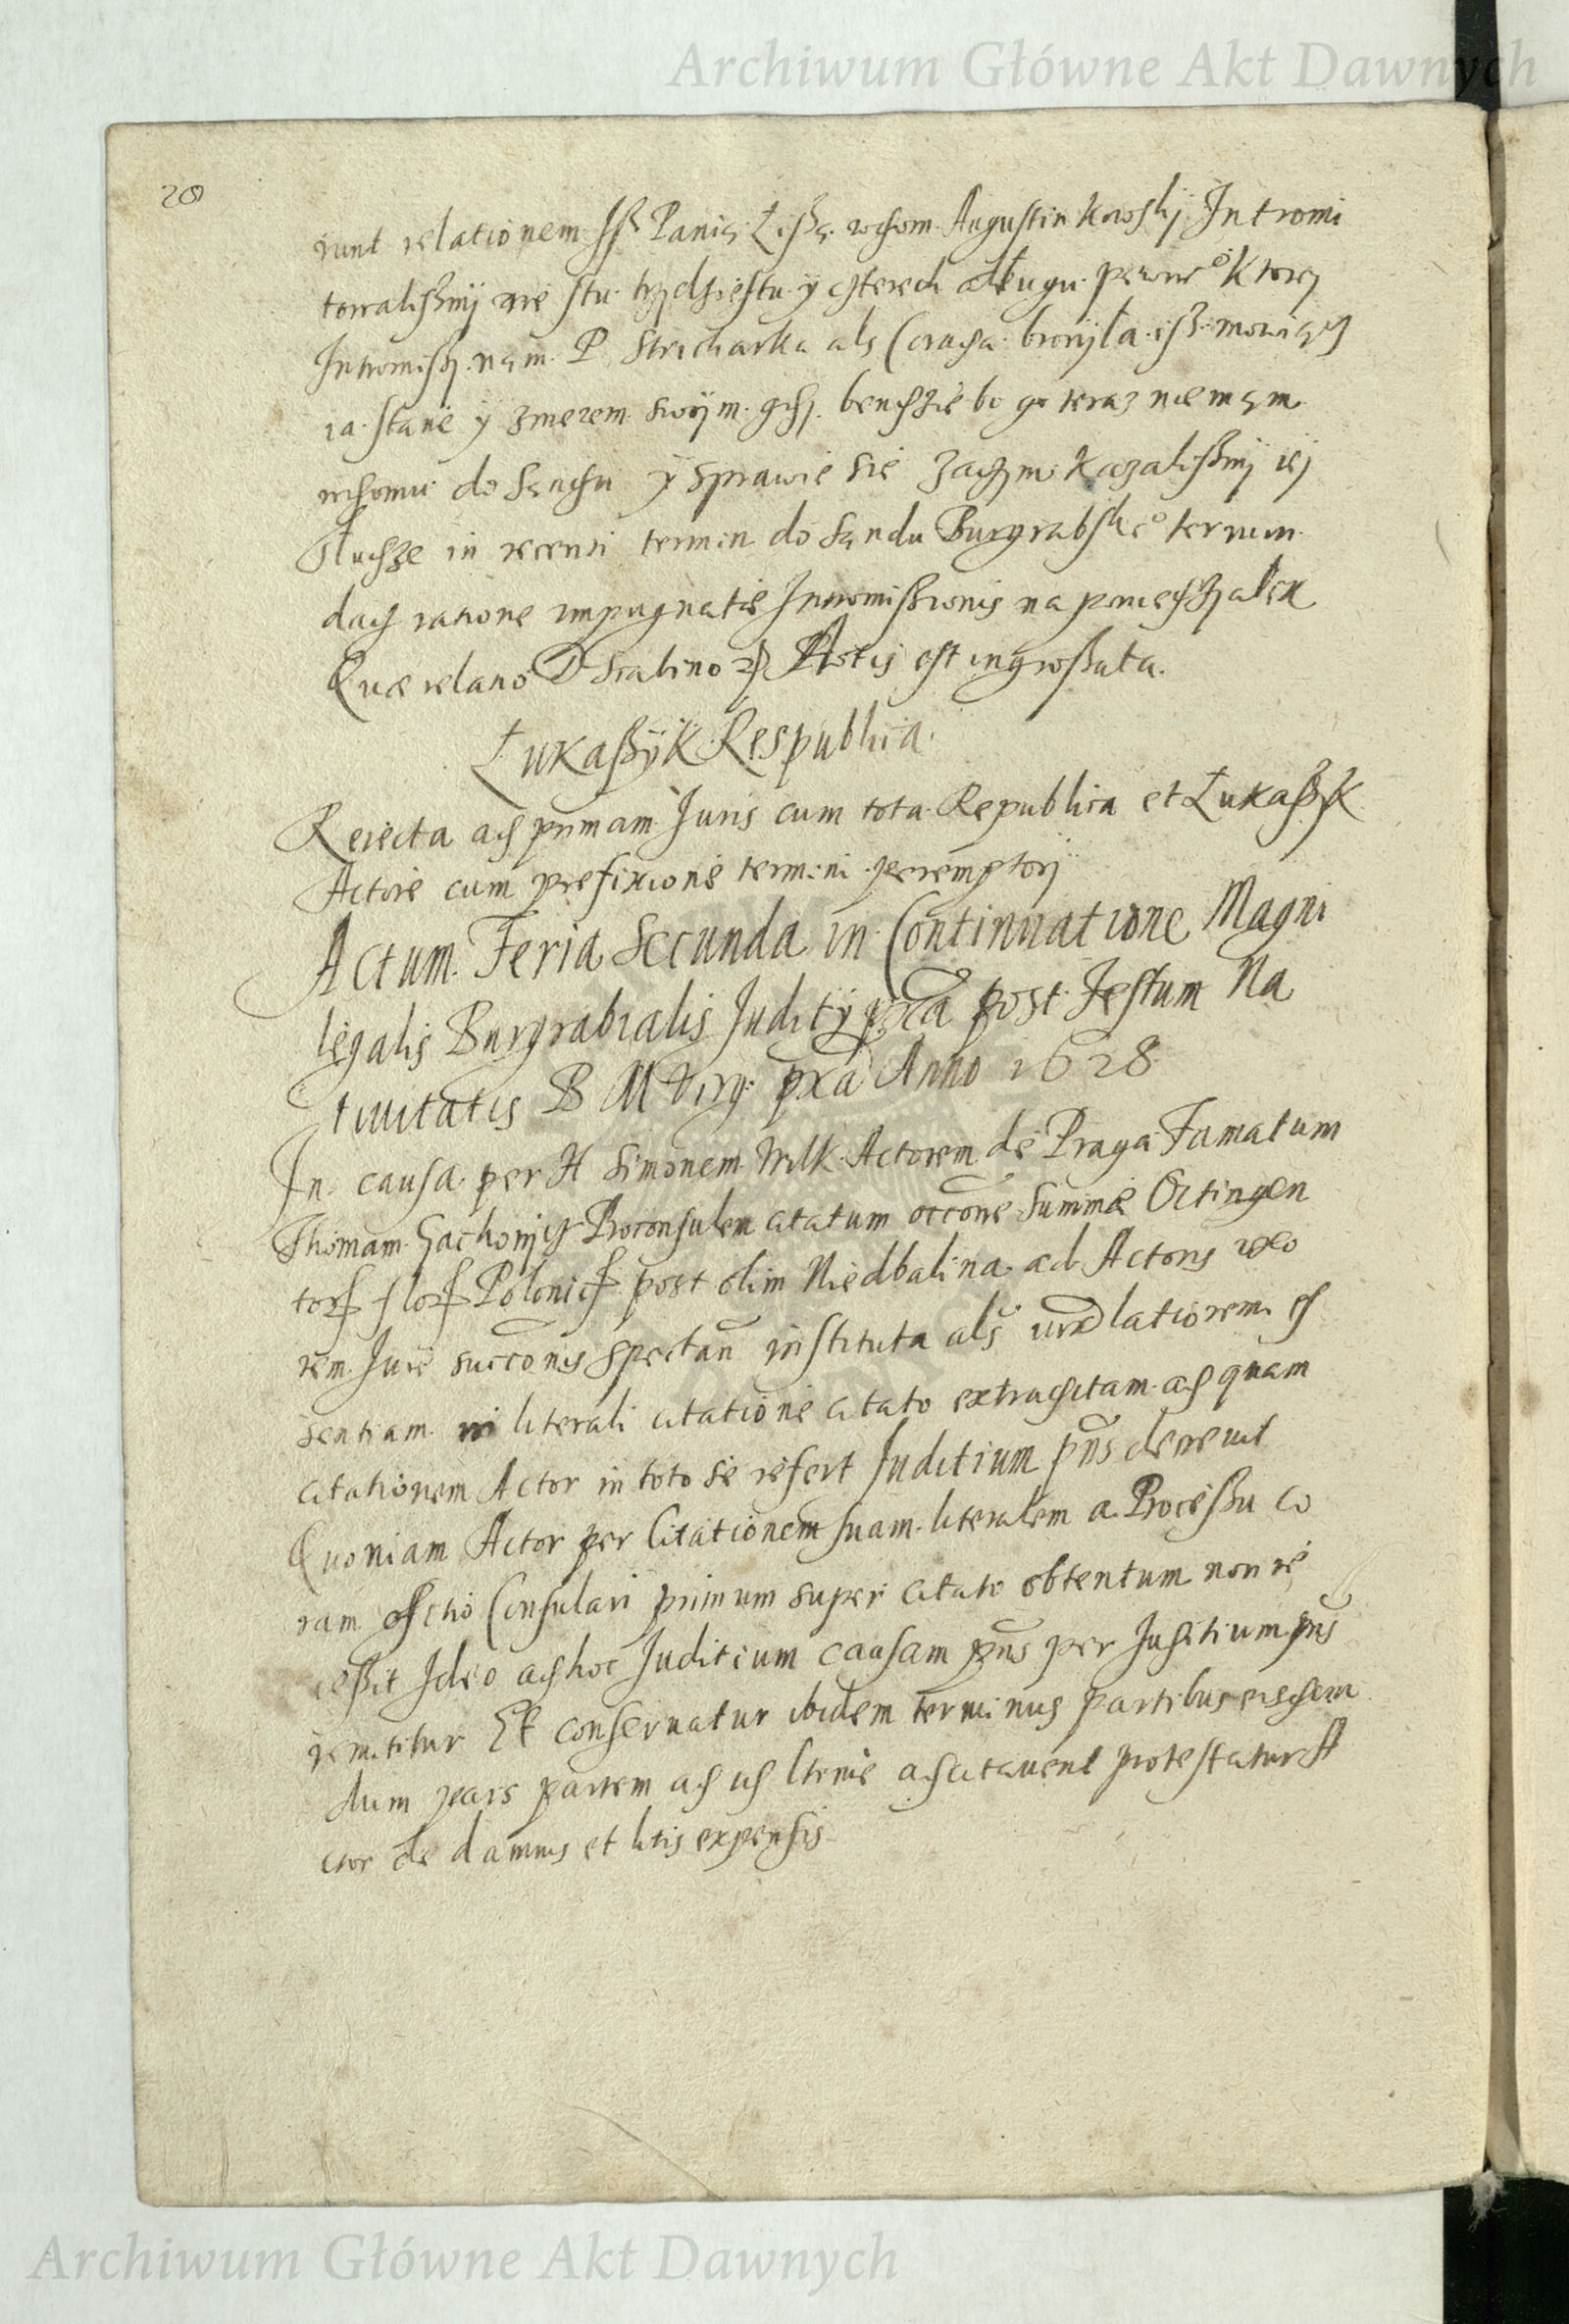 Archiwum Główne Akt Dawnych
28
runt relationem Panią Liszą Augustinkowskij Intromi
towalismij we stu trzdziestu y czterech dlugu pewne° Ktorej
Intromissij nam P Stricharka als broniła isz mowiącz
ia stanę y zmezem swoym bendzie bo go teraz nie mam
do sąndu y sprawie sie zaczym kazalismij iej
in recenti termin do sąndu Burgrabske° termin
dacz ratione impugnatie Intromissionis na
Quae relatio est ingrossata.
Łukaszyk Respublica
Reiecta ad primam Juris cum tota Republica et Łukaszyk
Actore cum prefixione termini peremptorij
Actum Feria Secunda in Continuatione Magni
legalis Burgrabialis Juditij post Festum Na
tiuitatis B M Virg: Anno 1628
In causa per H Simonem Wilk Actorem de Praga Famatum
Thomam Proconsulem citatum occone Summae Octingen
tor flor Polonic post olim Niedbalina ad Actoris uxo
rem Jure succonis spectan instituta als latiorem es
sentiam in literali citatione citato extraditam ad quam
citationem Actor in toto se refert Juditium pns decreuit
Quoniam Actor per Citationem suam literalem a Processu co
ram officio Consulari primum super citato obtentum non re
cessit Ideo ad hoc Juditium causam pns per Juditium pns
remititur Et conseruatur ibidem terminus partibus eisdem
dum pars partem ad id adcitauerit protestatur A
ctor de damnis et litis expensis
Archiwum Główne Akt Dawnych